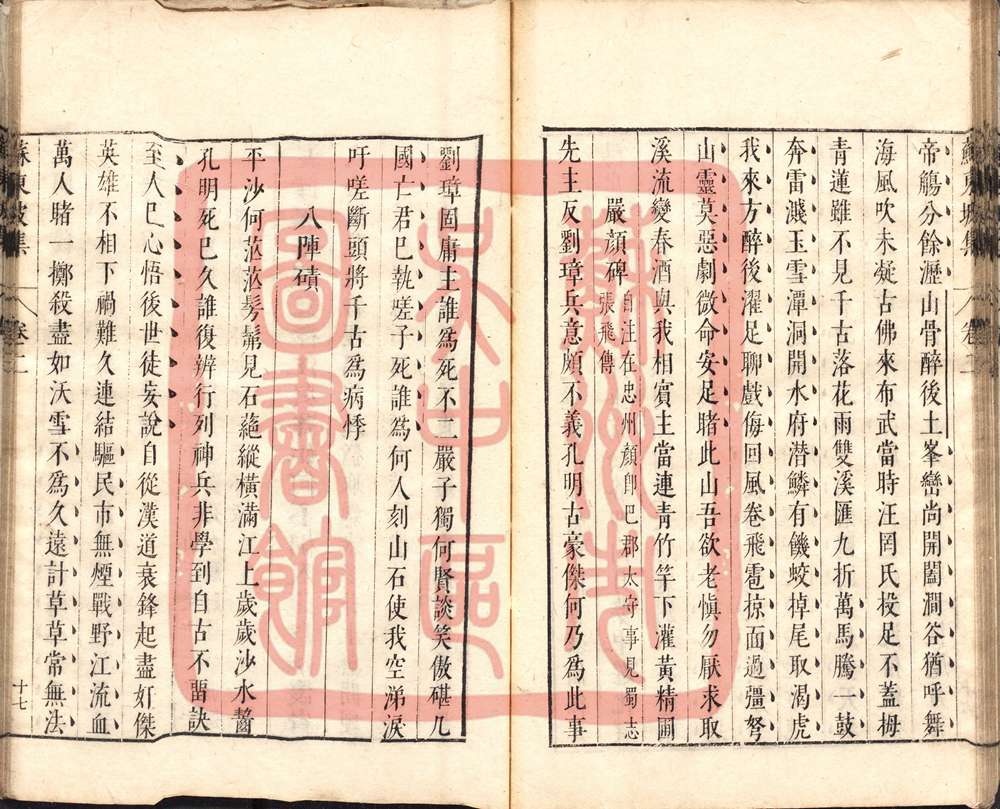 蘇東坡集
卷二
帝觴分餘瀝山骨醉後土峯巒尚開闔澗谷猶呼舞
海風吹未凝古佛來布武當時汪罔氏投足不蓋拇
青蓮雖不見千古落花雨雙溪匯九折萬馬騰一鼓
奔雷濺玉雪潭洞開水府潜鱗有饑蛟掉尾取渴虎
我來方醉後濯足聊戲侮回風卷飛雹掠面過彊弩
山靈莫惡劇微命安足賭此山吾欲老慎勿厭求取
溪流變春酒與我相賓主當連青竹竿下灌黃精圃
嚴顏碑 自注在忠州顏即巴郡太守事見蜀志
張飛傳
先主反劉璋兵意頗不義孔明古豪傑何乃為此事
劉璋固庸主誰為死不二嚴子獨何賢談笑傲碪几
國亡君已執嗟子死誰為何人刻山石使我空涕淚
吁嗟斷頭將千古為病悸
八陣磧
平沙何茫茫髣髴見石蕝縱橫滿江上歲歲沙水齧
孔明死已久誰復辨行列神兵非學到自古不留訣
至人已心悟後世徒妄說自從漢道衰鋒起盡奸傑
英雄不相下禍難久連結驅民市無煙戰野江流血
萬人賭一擲殺盡如沃雪不為久遠計草草常無法
蘇東坡集
卷二
十七
蘇州市
文史區
圖書館